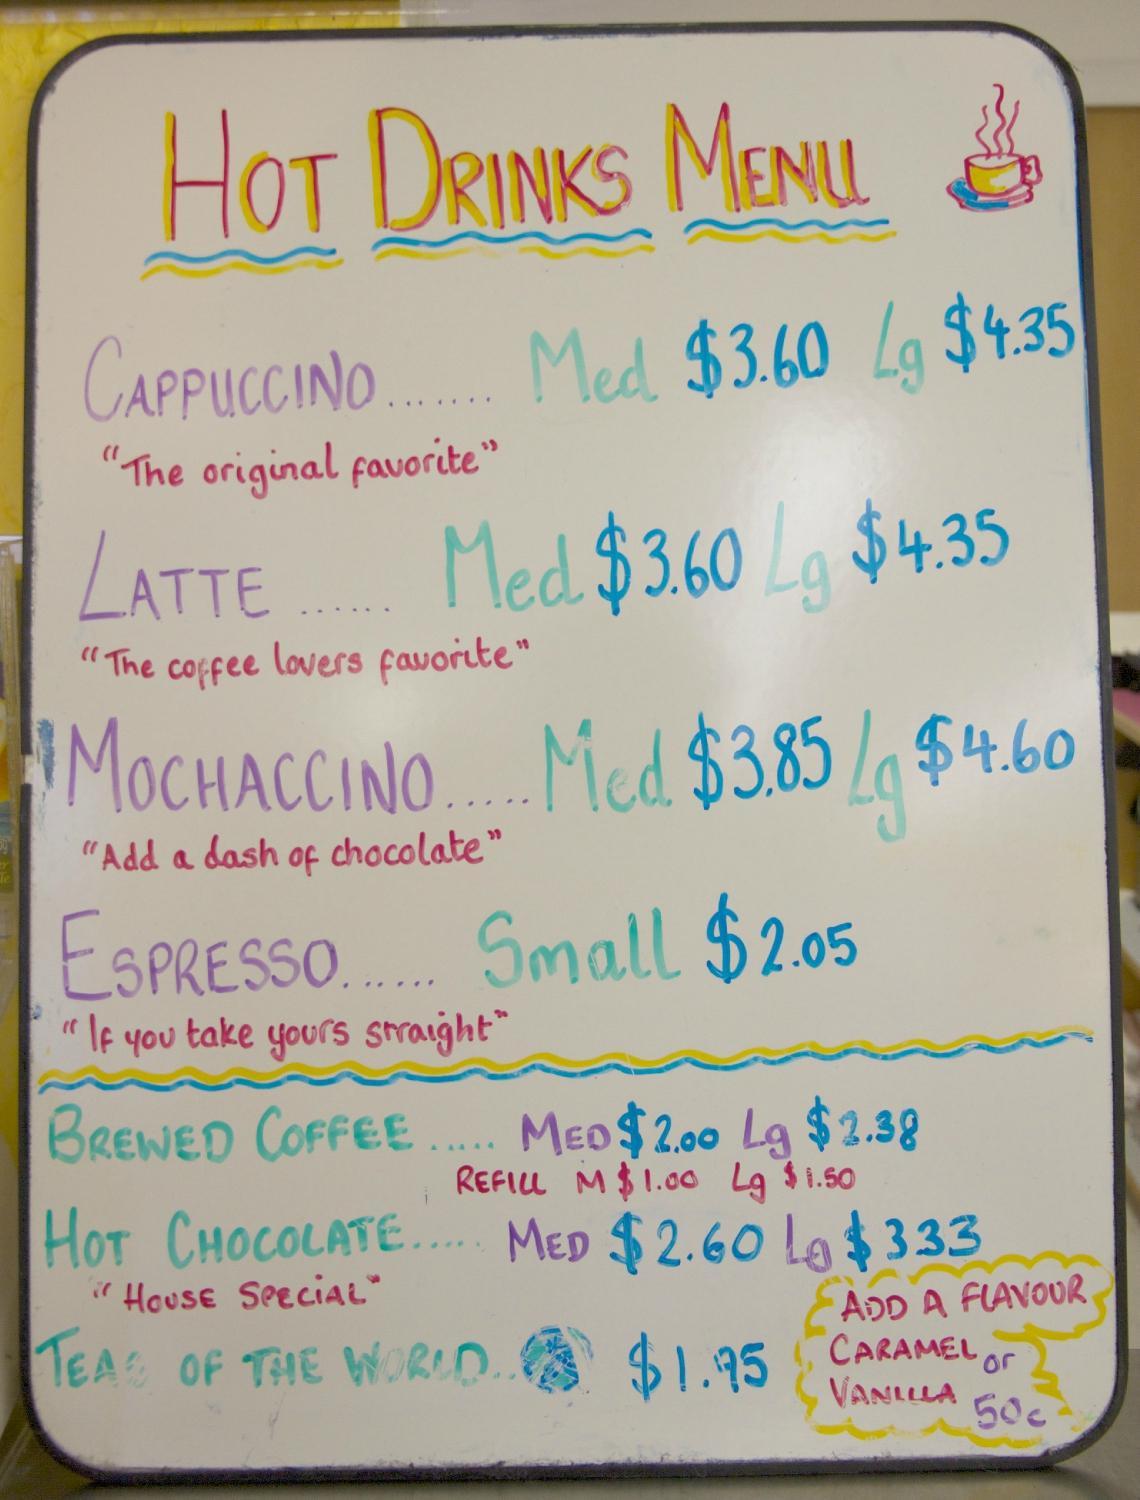 HOT DRINKS MENU
CAPPUCCINO....... Med $3.60 Lg $4.35
"The original favorite"
LATTE ...... Med $3.60 Lg $4.35
"The coffee lovers favorite"
MOCHACCINO..... Med $3.85 Lg $4.60
"Add a dash of chocolate"
ESPRESSO...... Small $2.05
"If you take yours straight"
BREWED COFFEE ..... MED $2.00 Lg $2.38
REFILL M $1.00 Lg $1.50
HOT CHOCOLATE..... MED $2.60 Lg $3.33
"HOUSE SPECIAL"
TEAS OF THE WORLD.. $1.95
ADD A FLAVOUR
CARAMEL or
VANILLA 50c